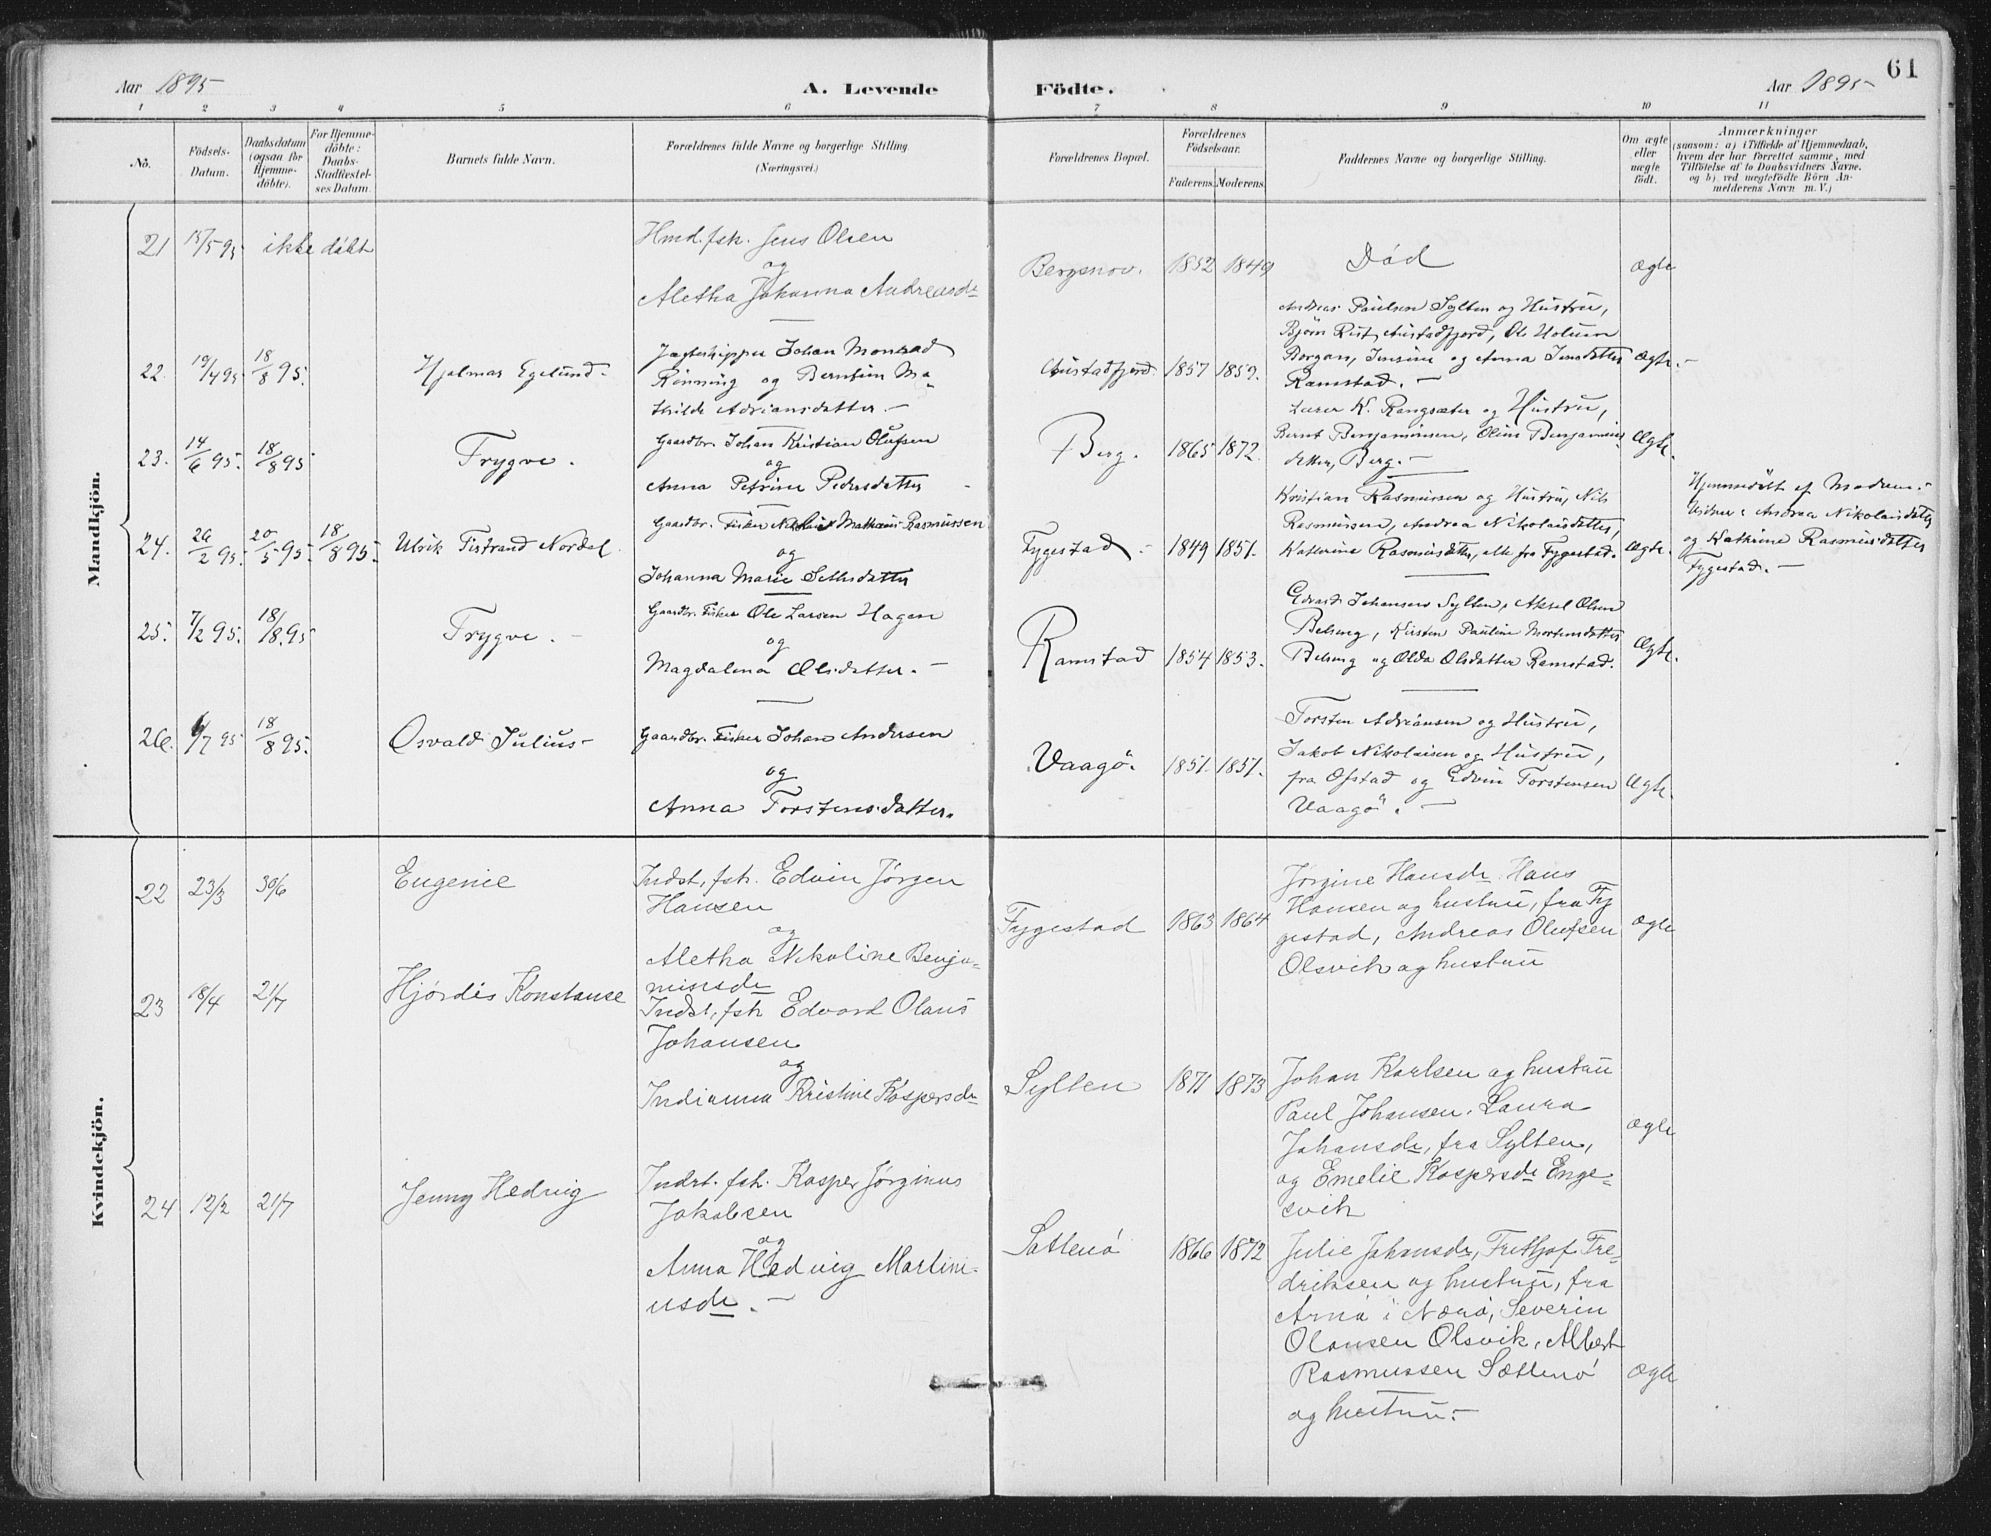 Aar 1895
A. Levende
Födte.
Aar 1895
61
1 2 3 4 5 6 7 8 9 10 11
No.
Födsels-
Datum.
Daabsdatum
(ogsaa för
Hjemme-
döbte).
For Hjemme-
döbte:
Daabs-
Stadfæstel-
ses Datum.
Barnets fulde Navn.
Forældrenes fulde Navne og borgerlige Stilling
(Næringsvei.)
Forældrenes Bopæl.
Forældrenes
Födselsaar.
Faderens. Moderens.
Faddernes Navne og borgerlige Stilling.
Om ægte
eller
uægte
födt.
Anmærkninger
(saasom: a) i Tilfælde af Hjemmedaab,
hvem der har forrettet samme, med
Tilföielse af to Daabsvidners Navne.
og b) ved uægtefödte Börn An-
melderens Navn m. V.)
Mandkjön.
21 15/5 95 ikke døbt
Hmd. fsk. Jens Olsen
og
Aletha Johanna Andreasdr
Bergsnov. 1852 1849
Død
ægte
22. 19/4 95 18/8 95.
Hjalmar Egelund.
Jægteskipper Johan Monrad
Rönning og Berntine Ma-
thilde Adriansdatter. -
Austadfjord. 1857 1859.
Andreas Paulsen Sylten og Hustru,
Björn Rist, Austadfjord, Ole Holum
Borgan, Jensine og Anna Jensdatter
Ramstad. -
Ægte. -
23. 14/6 95. 18/8 95
Trygve.
Gaardbr. Johan Kristian Olufsen
og
Anna Petrine Pedersdatter
Berg. 1865 1872.
Lærer K. Rangsæter og Hustru,
Bernt Benjaminsen, Oline Benjamins
datter, Berg. -
Ægte.
24. 26/2 95. 20/5 95. 18/8 95.
Ulrik Tistrand Nordal.
Gaardbr. Fisker Mathæus Rasmussen
og
Johanna Marie Sethsdatter
Fygestad. - 1849 1851.
Kristian Rasmussen og Hustru, Nils
Rasmussen, Andrea Nikolaisdatter,
Katherina Rasmusdatter, alle fra Fygestad.
Ægte.
Hjemmedöbt af Moderen. -
Vidner: Andrea Nikolaisdatter
og Kathrine Rasmusdatter
Fygestad. -
25. 7/2 95. 18/8 95
Trygve. -
Gaardbr. Fisker Ole Larsen Hagen
og
Magdalena Olsdatter. -
Ramstad 1854 1853.
Edvard Johansen Sylten, Aksel Olsen
Belseng, Kirsten Pauline Mortensdatter
Belseng og Olda Olsdatter Ramstad.
Ægte.
26. 6/7 95 18/8 95.
Osvald Julius -
Gaardbr. Fisker Johan Andersen
og
Anna Torstensdatter.
Vaagö. 1851. 1851.
Torsten Adriansen og Hustru,
Jakob Nikolaisen og Hustru,
fra Ofstad og Edvin Torstensen
Vaagö. -
Ægte.
Kvindekjön.
22 23/3 30/6
Eugenie
Indst. fsk. Edvin Jørgen
Hansen
og
Aletha Nikoline Benja-
minsdr
Fygestad 1863 1864
Jørgine Hansdr. Hans
Hansen og hustru, fra Fy
gestad, Andreas Olufsen
Olsvik og hustru
ægte
23 18/4 21/7
Hjørdis Konstanse
Indst. fsk Edvard Olaus
Johansen
og
Indianna Kristine Kaspersdr
Sylten 1871 1873
Johan Karlsen og hustru
Paul Johansen, Laura
Johansdr, fra Sylten,
og Emelie Kaspersdr Enge-
svik
ægte
24 12/2 21/7
Jenny Hedvig
Indst. fsk. Kasper Jørginus
Jakobsen
og
Anna Hedvig Martini-
usdr. -
Sættenø 1866 1872
Julie Johansdr, Frithjof Fre-
driksen og hustru, fra
Arnø i Nærø, Severin
Olausen Olsvik, Albert
Rasmussen Sættenø
og hustru. -
ægte